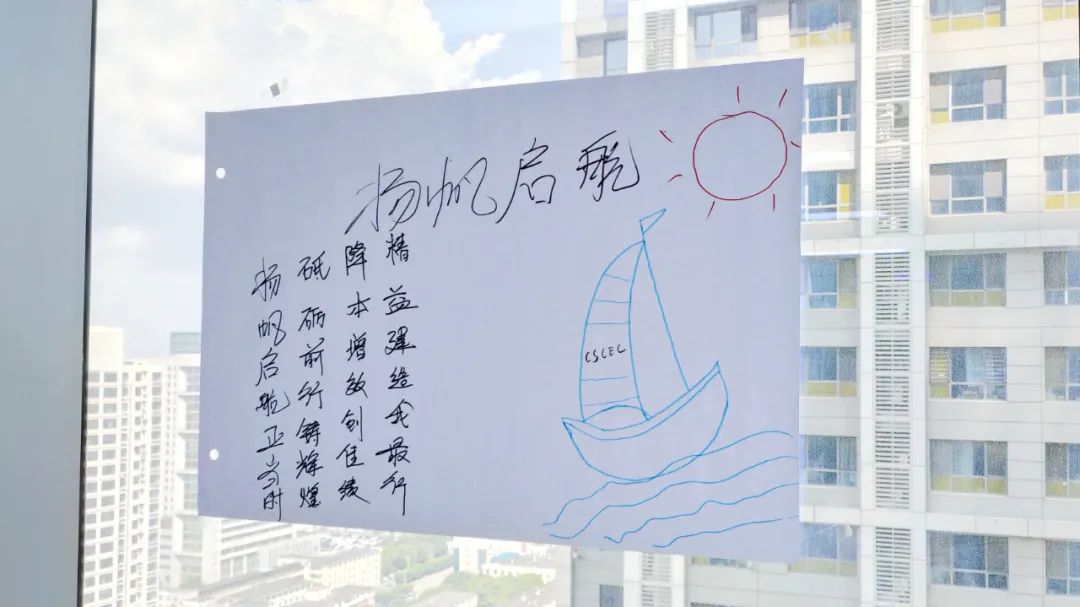 扬帆启航
精益建造我最行
降本增效创佳绩
砥砺前行铸辉煌
扬帆启航正当时
CSCEC